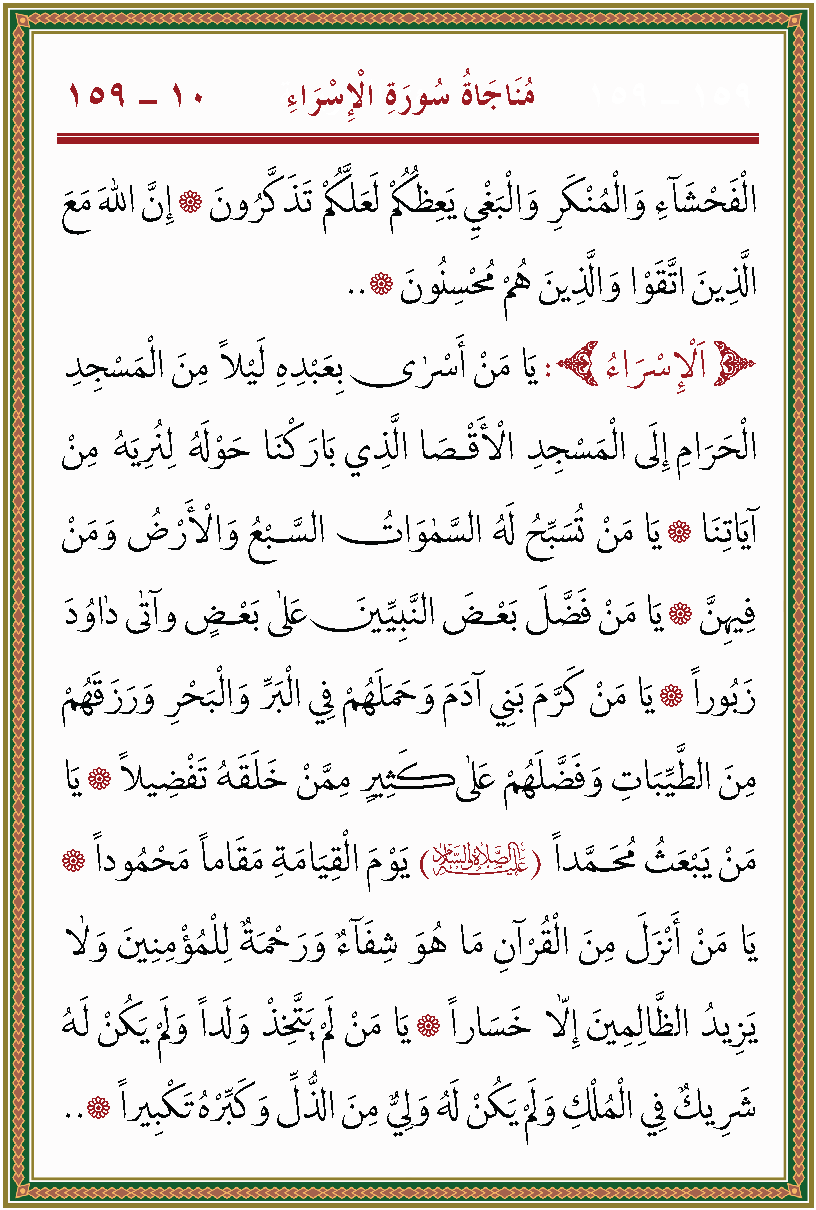 مُنَاجَاةُ سُورَةِ الْإِسْرَاءِ ١٠ – ١٥٩
الْفَحْشَآءِ وَالْمُنْكَرِ وَالْبَغْيِ يَعِظُكُمْ لَعَلَّكُمْ تَذَكَّرُونَ ۞ إِنَّ اللهَ مَعَ
الَّذِينَ اتَّقَوْا وَالَّذِينَ هُمْ مُحْسِنُونَ ۞..
﴿اَلْإِسْرَاءُ﴾: يَا مَنْ أَسْرٰى بِعَبْدِهِ لَيْلاً مِنَ الْمَسْجِدِ
الْحَرَامِ إِلَى الْمَسْجِدِ الْأَقْصَا الَّذِي بَارَكْنَا حَوْلَهُ لِنُرِيَهُ مِنْ
آيَاتِنَا ۞ يَا مَنْ تُسَبِّحُ لَهُ السَّمٰوَاتُ السَّبْعُ وَالْأَرْضُ وَمَنْ
فِيهِنَّ ۞ يَا مَنْ فَضَّلَ بَعْضَ النَّبِيِّينَ عَلٰى بَعْضٍ وآتٰى دَاوُدَ
زَبُوراً ۞ يَا مَنْ كَرَّمَ بَنِي آدَمَ وَحَمَلَهُمْ فِي الْبَرِّ وَالْبَحْرِ وَرَزَقَهُمْ
مِنَ الطَّيِّبَاتِ وَفَضَّلَهُمْ عَلٰى كَثِيرٍ مِمَّنْ خَلَقَهُ تَفْضِيلاً ۞ يَا
مَنْ يَبْعَثُ مُحَمَّداً (عَلَيْهِ الصَّلَاةُ وَالسَّلَامُ) يَوْمَ الْقِيَامَةِ مَقَاماً مَحْمُوداً ۞
يَا مَنْ أَنْزَلَ مِنَ الْقُرْآنِ مَا هُوَ شِفَآءٌ وَرَحْمَةٌ لِلْمُؤْمِنِينَ وَلَا
يَزِيدُ الظَّالِمِينَ إِلّاَ خَسَاراً ۞ يَا مَنْ لَمْ يَتَّخِذْ وَلَداً وَلَمْ يَكُنْ لَهُ
شَرِيكٌ فِي الْمُلْكِ وَلَمْ يَكُنْ لَهُ وَلِيٌّ مِنَ الذُّلِّ وَكَبِّرْهُ تَكْبِيراً ۞..